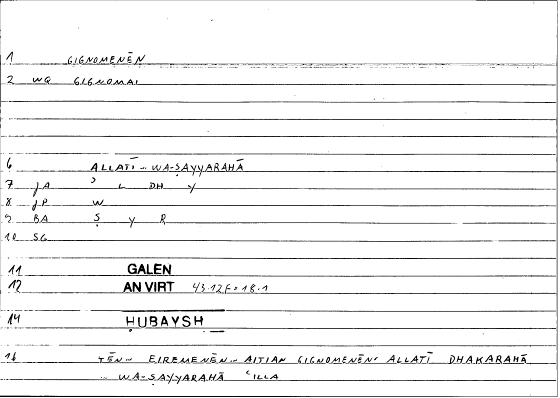 1 GIGNOMENĒN
2 WQ GIGNOMAI
6 ALLATĪ - WA-ṢAYYARAHĀ
7 JA ʾ L DH Y
8 JP W
9 BA Ṣ Y R
10 SG
11 GALEN
12 AN VIRT 43.12 F = 18.1
14 ḤUBAYSH
16 TĒN - EIREMENĒN - AITIAN GIGNOMENĒN: ALLATĪ DHAKARAHĀ
- WA-ṢAYYARAHĀ ʿILLA